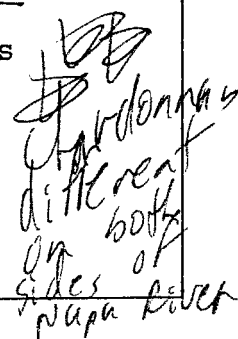 s
Chardonnays
different
on both
sides of
Napa River